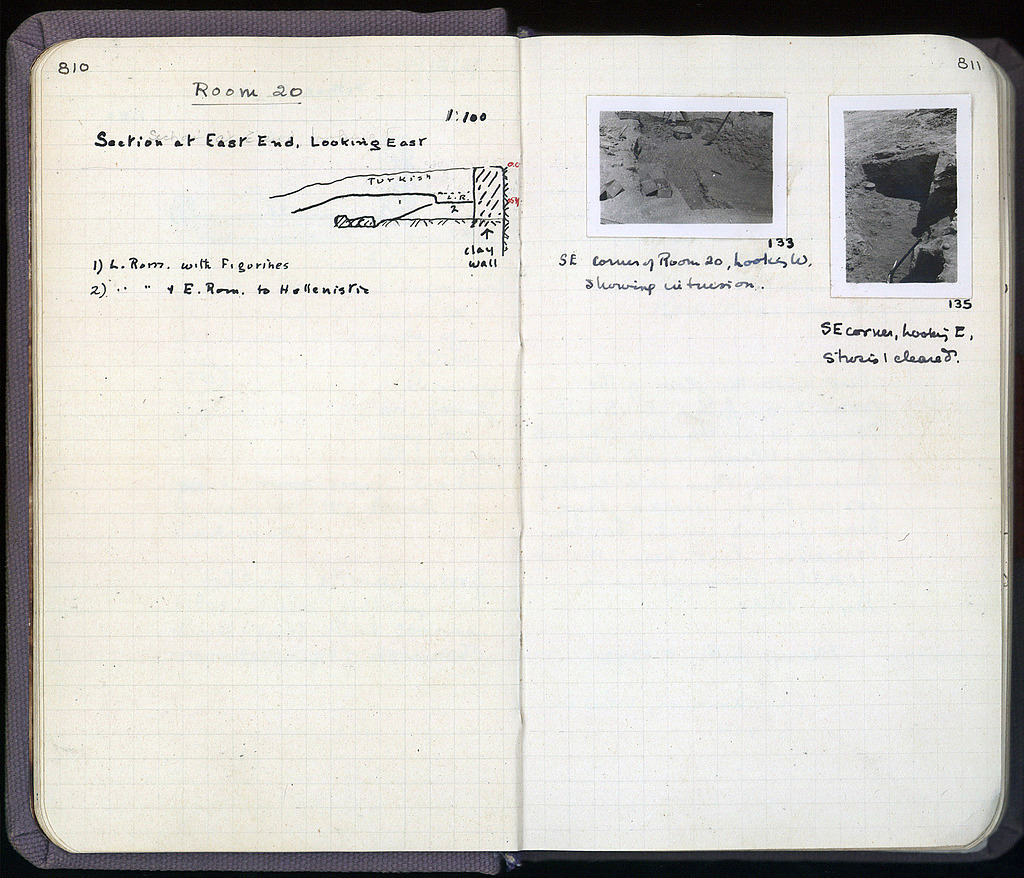 810
Room 20
1:100
Section at East End, Looking East
Turkish
0.0
L.R.
1
2
clay
wall
1) L. Rom. with Figurines
2) " " + E. Rom. to Hellenistic
811
133
SE corner of Room 20, Looking W.
showing intrusion.
135
SE corner, Looking E,
Strosis 1 cleared.